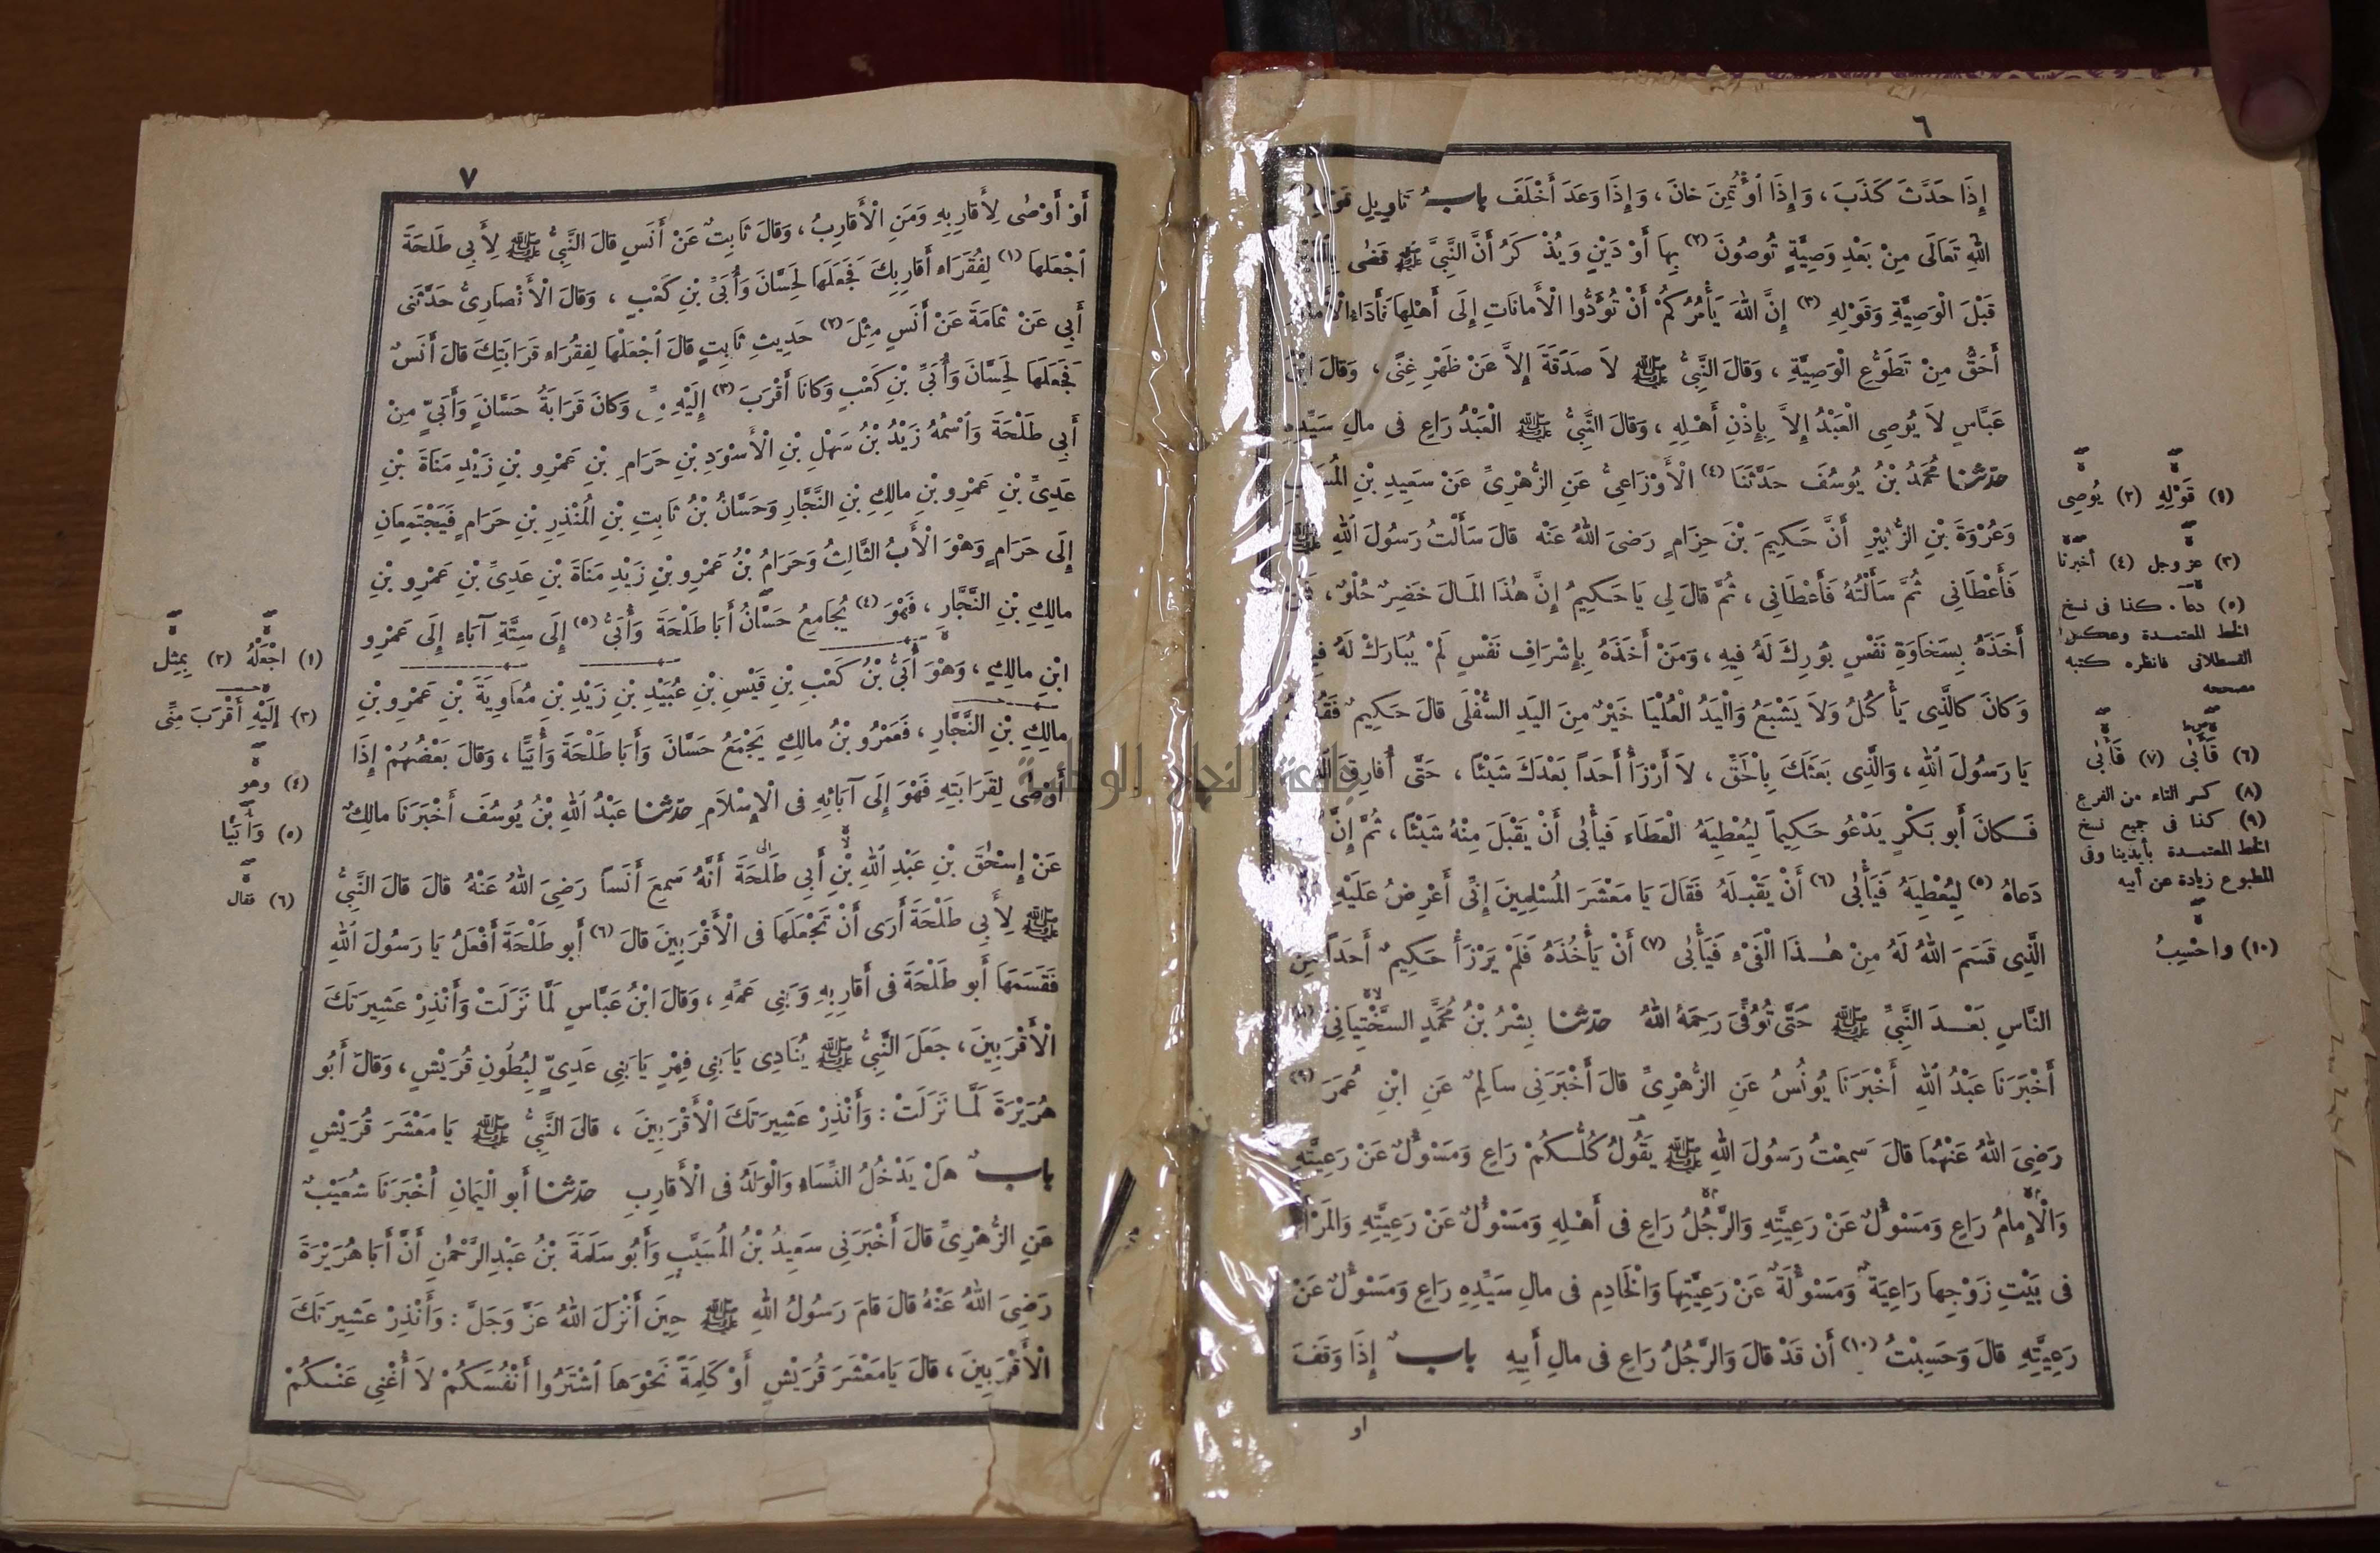 ٦
إِذَا حَدَّثَ كَذَبَ ، وَإِذَا اؤْتُمِنَ خانَ ، وَإِذَا وَعَدَ أَخْلَفَ بابُ تَأْوِيلِ
اللهِ تَعَالَى مِنْ بَعْدِ وَصِيَّةٍ تُوصُونَ (٢) بِهَا أَوْ دَيْنٍ وَيُذْكَرُ أَنَّ النَّبِيَّ ﷺ قَضٰى
قَبْلَ الْوَصِيَّةِ وَقَوْلِهِ (٣) إِنَّ اللهَ يَأْمُرُكُمْ أَنْ تُؤَدُّوا الْأَمانَاتِ إِلَى أَهْلِهَا فَأَدَاءِ
أَحَقُّ مِنْ تَطَوُّعِ الْوَصِيَّةِ ، وَقالَ النَّبِيُّ ﷺ لاَ صَدَقَةَ إِلاَّ عَنْ ظَهْرِ غِنًى ، وَقالَ ابْنُ
عَبَّاسٍ لاَ يُوصِي الْعَبْدُ إِلاَّ بِإِذْنِ أَهْلِهِ ، وَقالَ النَّبِيُّ ﷺ الْعَبْدُ رَاعٍ فى مالِ سَيِّدِهِ
حدثنا مُحَمَّدُ بْنُ يُوسُفَ حَدَّثَنَا (٤) الْأَوْزَاعِيُّ عَنِ الزُّهْرِيِّ عَنْ سَعِيدِ بْنِ
وَعُرْوَةَ بْنِ الزُّبَيْرِ أَنَّ حَكِيمَ بْنَ حِزَامٍ رَضِيَ اللهُ عَنْه قالَ سَأَلْتُ رَسُولَ اللهِ ﷺ
فَأَعْطَانِي ثُمَّ سَأَلْتُهُ فَأَعْطَانِي ، ثُمَّ قالَ لِي يَا حَكِيمُ إِنَّ هٰذَا الْمَالَ خَضِرٌ حُلْوٌ ، فَمَنْ
أَخَذَهُ بِسَخَاوَةِ نَفْسٍ بُورِكَ لَهُ فِيهِ ، وَمَنْ أَخَذَهُ بِإِشْرَافِ نَفْسٍ لَمْ يُبَارَكْ لَهُ فِيهِ
وَكَانَ كَالَّذِي يَأْكُلُ وَلاَ يَشْبَعُ وَالْيَدُ الْعُلْيَا خَيْرٌ مِنَ الْيَدِ السُّفْلَى قالَ حَكِيمٌ فَقُلْتُ
يَا رَسُولَ اللهِ ، وَالَّذِي بَعَثَكَ بِالْحَقِّ ، لاَ أَرْزَأُ أَحَداً بَعْدَكَ شَيْئاً ، حَتَّى أُفارِقَ
فَكانَ أَبو بَكْرٍ يَدْعُو حَكِيماً لِيُعْطِيَهُ الْعَطَاءَ فَيَأْبٰى أَنْ يَقْبَلَ مِنْهُ شَيْئاً ، ثُمَّ إِنَّ
دَعاهُ (٥) لِيُعْطِيَهُ فَيَأْبٰى (٦) أَنْ يَقْبَلَهُ فَقَالَ يَا مَعْشَرَ الْمُسْلِمِينَ إِنِّي أَعْرِضُ عَلَيْهِ
الَّذِي قَسَمَ اللهُ لَهُ مِنْ هٰذَا الْفَيْءِ فَيَأْبٰى (٧) أَنْ يَأْخُذَهُ فَلَمْ يَرْزَأْ حَكِيمٌ أَحَداً مِنَ
النَّاسِ بَعْدَ النَّبِيِّ ﷺ حَتَّى تُوُفِّيَ رَحِمَهُ اللهُ حدثنا بِشْرُ بْنُ مُحَمَّدٍ السَّخْتِيَانِيُّ (٨)
أَخْبَرَنَا عَبْدُ اللهِ أَخْبَرَنَا يُونُسُ عَنِ الزُّهْرِيِّ قالَ أَخْبَرَنِي سالِمٌ عَنِ ابْنِ عُمَرَ (٩)
رَضِيَ اللهُ عَنْهُمَا قالَ سَمِعْتُ رَسُولَ اللهِ ﷺ يَقُولُ كُلُّكُمْ رَاعٍ وَمَسْؤُلٌ عَنْ رَعِيَّتِهِ
وَالْإِمامُ رَاعٍ وَمَسْؤُلٌ عَنْ رَعِيَّتِهِ وَالرَّجُلُ رَاعٍ فى أَهْلِهِ وَمَسْؤُلٌ عَنْ رَعِيَّتِهِ وَالْمَرْأَةُ
فى بَيْتِ زَوْجِها رَاعِيَةٌ وَمَسْؤُلَةٌ عَنْ رَعِيَّتِهَا وَالْخَادِمُ فى مالِ سَيِّدِهِ رَاعٍ وَمَسْؤُلٌ عَنْ
رَعِيَّتِهِ قالَ وَحَسِبْتُ (١٠) أَن قَدْ قالَ وَالرَّجُلُ رَاعٍ فى مالِ أَبِيهِ بابٌ إِذَا وَقَفَ
او
(١) قَوْلِهِ (٢) يُوصِي
(٣) عز وجل (٤) أخبرنا
(٥) دعا . كذا فى نسخ
الخط المعتمدة وعكس
القسطلانى فانظره كتبه
مصححه
(٦) فَأَبٰى (٧) فَأَبٰى
(٨) كسر التاء من الفرع
(٩) كذا فى جميع نسخ
الخط المعتمدة بأيدينا وفى
المطبوع زيادة عن أبيه
(١٠) وَاحْسِبُ
٧
أَوْ أَوْصٰى لِأَقارِبِهِ وَمَنِ الْأَقارِبُ ، وَقالَ ثَابِتٌ عَنْ أَنَسٍ قالَ النَّبِيُّ ﷺ لِأَبِي طَلْحَةَ
اَجْعَلْهَا (١) لِفُقَرَاءِ أَقارِبِكَ فَجَعَلَهَا لِحَسَّانَ وَأُبَيِّ بْنِ كَعْبٍ ، وَقالَ الْأَنْصَارِيُّ حَدَّثَنِي
أَبِي عَنْ ثُمَامَةَ عَنْ أَنَسٍ مِثْلَ (٢) حَدِيثِ ثَابِتٍ قالَ اَجْعَلْهَا لِفُقَرَاءِ قَرَابَتِكَ قالَ أَنَسٌ
فَجَعَلَهَا لِحَسَّانَ وَأُبَيِّ بْنِ كَعْبٍ وَكانَا أَقْرَبَ (٣) إِلَيْهِ مِنِّي وَكانَ قَرَابَةُ حَسَّانٍ وَأُبَيٍّ مِنْ
أَبِي طَلْحَةَ وَاسْمُهُ زَيْدُ بْنُ سَهْلِ بْنِ الْأَسْوَدِ بْنِ حَرَامِ بْنِ عَمْرِو بْنِ زَيْدِ مَنَاةَ بْنِ
عَدِيِّ بْنِ عَمْرِو بْنِ مالِكِ بْنِ النَّجَّارِ وَحَسَّانُ بْنُ ثَابِتِ بْنِ الْمُنْذِرِ بْنِ حَرَامٍ فَيَجْتَمِعانِ
إِلَى حَرَامٍ وَهْوَ الْأَبُ الثَّالِثُ وَحَرَامُ بْنُ عَمْرِو بْنِ زَيْدِ مَنَاةَ بْنِ عَدِيِّ بْنِ عَمْرِو بْنِ
مالِكِ بْنِ النَّجَّارِ ، فَهْوَ (٤) يُجَامِعُ حَسَّانُ أَبَا طَلْحَةَ وَأُبَيٌّ (٥) إِلَى سِتَّةِ آبَاءٍ إِلَى عَمْرِو
ابْنِ مالِكٍ ، وَهْوَ أُبَيُّ بْنُ كَعْبِ بْنِ قَيْسِ بْنِ عُبَيْدِ بْنِ زَيْدِ بْنِ مُعَاوِيَةَ بْنِ عَمْرِو بْنِ
مالِكِ بْنِ النَّجَّارِ ، فَعَمْرُو بْنُ مالِكٍ يَجْمَعُ حَسَّانَ وَأَبَا طَلْحَةَ وَأُبَيًّا ، وَقالَ بَعْضُهُمْ إِذَا
أَوْصٰى لِقَرَابَتِهِ فَهْوَ إِلَى آبَائِهِ فى الْإِسْلاَمِ حدثنا عَبْدُ اللهِ بْنُ يُوسُفَ أَخْبَرَنَا مالِكٌ
عَنْ إِسْحٰقَ بْنِ عَبْدِ اللهِ بْنِ أَبِي طَلْحَةَ أَنَّهُ سَمِعَ أَنَساً رَضِيَ اللهُ عَنْهُ قالَ قالَ النَّبِيُّ
ﷺ لِأَبِي طَلْحَةَ أَرَى أَنْ تَجْعَلَهَا فى الْأَقْرَبِينَ قالَ (٦) أَبو طَلْحَةَ أَفْعَلُ يَا رَسُولَ اللهِ
فَقَسَمَهَا أَبو طَلْحَةَ فى أَقارِبِهِ وَبَنِي عَمِّهِ ، وَقالَ ابْنُ عَبَّاسٍ لَمَّا نَزَلَتْ وَأَنْذِرْ عَشِيرَتَكَ
الْأَقْرَبِينَ ، جَعَلَ النَّبِيُّ ﷺ يُنَادِي يَا بَنِي فِهْرٍ يَا بَنِي عَدِيٍّ لِبُطُونِ قُرَيْشٍ ، وَقالَ أَبُو
هُرَيْرَةَ لَمَّا نَزَلَتْ : وَأَنْذِرْ عَشِيرَتَكَ الْأَقْرَبِينَ ، قالَ النَّبِيُّ ﷺ يَا مَعْشَرَ قُرَيْشٍ
بابٌ هَلْ يَدْخُلُ النِّسَاءُ وَالْوَلَدُ فى الْأَقارِبِ حدثنا أَبو الْيَمَانِ أَخْبَرَنَا شُعَيْبٌ
عَنِ الزُّهْرِيِّ قالَ أَخْبَرَنِي سَعِيدُ بْنُ الْمُسَيَّبِ وَأَبُو سَلَمَةَ بْنُ عَبْدِ الرَّحْمٰنِ أَنَّ أَبَا هُرَيْرَةَ
رَضِيَ اللهُ عَنْهُ قالَ قامَ رَسُولُ اللهِ ﷺ حِينَ أَنْزَلَ اللهُ عَزَّ وَجَلَّ : وَأَنْذِرْ عَشِيرَتَكَ
الْأَقْرَبِينَ ، قالَ يَا مَعْشَرَ قُرَيْشٍ أَوْ كَلِمَةً نَحْوَهَا اَشْتَرُوا أَنْفُسَكُمْ لاَ أُغْنِي عَنْكُمْ
(١) اجْعَلْهُ (٢) بِمِثْلِ
(٣) إِلَيْهِ أَقْرَبَ مِنِّي
(٤) وهو
(٥) وَأُبَيًّا
(٦) فقال
جامعة النجاح الوطنية